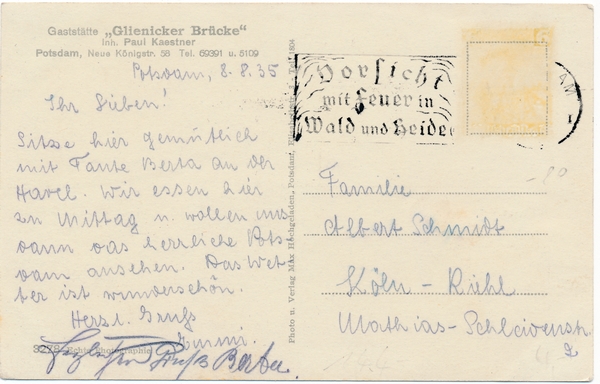 Gaststätte „Glienicker Brücke"
Inh. Paul Kaestner
Potsdam, Neue Königstr. 58 Tel. 69391 u. 5109
Potsdam, 8.8.35
Ihr Lieben!
Sitze hier gemütlich
mit Tante Berta an der
Havel. Wir essen hier
zu Mittag u. wollen uns
dann das herrliche Pots
dam ansehen. Das Wet-
ter ist wunderschön.
Herzl. Gruß
Gruß Berta
Photo u. Verlag Max Hochgeladen, Potsdam,
Vorsicht
mit Feuer in
Wald und Heide
AM
Familie
Albert Schmidt
Köln-Riehl
Mathias-Schleidenstr.